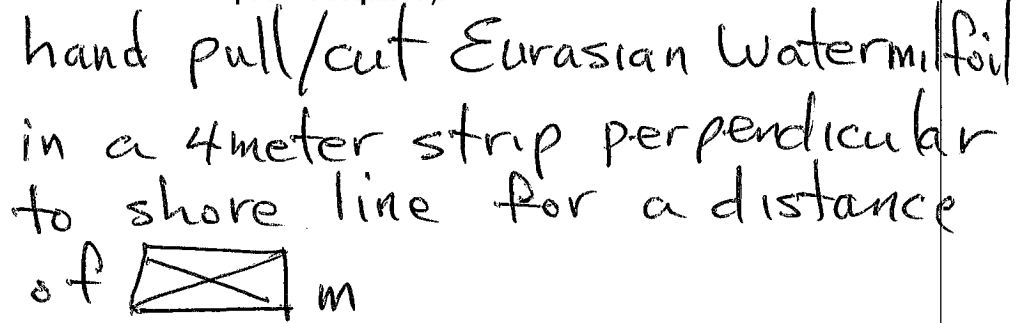 hand pull/cut Eurasian Watermilfoil
in a 4 meter strip perpendicular
to shore line for a distance
of m